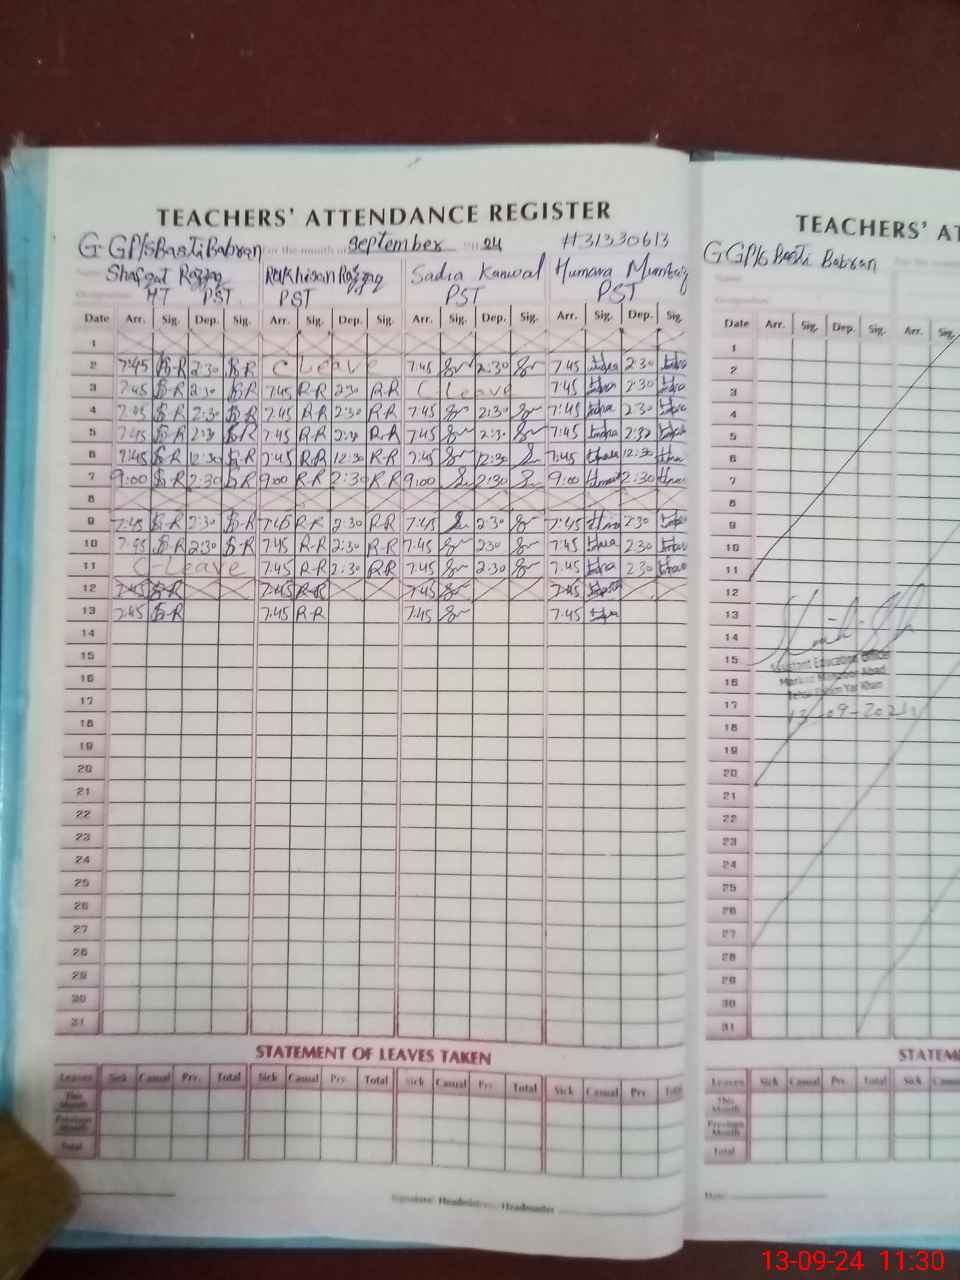 TEACHERS' ATTENDANCE REGISTER
G-GP/s Basti Babran For the month of September 2024 #31330613
Shafqat Razzaq Rukhisan Razzaq Sadia Kanwal Humara Mumtaz
HT PST. PST PST PST
Date Arr. Sig. Dep. Sig. Arr. Sig. Dep. Sig. Arr. Sig. Dep. Sig. Arr. Sig. Dep. Sig.
1
2 7:45 S-R 2:30 S-R C Leave 7:45 2:30 7:45 2:30
3 7:45 S-R 2:30 S-R 7:45 R-R 2:30 R-R C Leave 7:45 2:30
4 7:45 S-R 2:30 S-R 7:45 R-R 2:30 R-R 7:45 2:30 7:45 2:30
5 7:45 S-R 2:30 S-R 7:45 R-R 2:30 R-R 7:45 2:30 7:45 2:30
6 7:45 S-R 12:30 S-R 7:45 R-R 12:30 R-R 7:45 12:30 7:45 12:30
7 9:00 S-R 2:30 S-R 9:00 R-R 2:30 R-R 9:00 2:30 9:00 2:30
8
9 7:45 S-R 2:30 S-R 7:45 R-R 2:30 R-R 7:45 2:30 7:45 2:30
10 7:45 S-R 2:30 S-R 7:45 R-R 2:30 R-R 7:45 2:30 7:45 2:30
11 C-Leave 7:45 R-R 2:30 R-R 7:45 2:30 7:45 2:30
12 7:45 S-R 7:45 R-R 7:45 7:45
13 7:45 S-R 7:45 R-R 7:45 7:45
14
15
16
17
18
19
20
21
22
23
24
25
26
27
28
29
30
31
STATEMENT OF LEAVES TAKEN
Leaves Sick Casual Prv. Total Sick Casual Prv. Total Sick Casual Prv. Total Sick Casual Prv. Total
This Month
Previous Month
Total
Signature Headmistress/Headmaster
TEACHERS' AT
G GP/s Basti Babran
Name
Designation
Date Arr. Sig. Dep. Sig. Arr. Sig.
1
2
3
4
5
6
7
8
9
10
11
12
13
14
15
16
17
18
19
20
21
22
23
24
25
26
27
28
29
30
31
Assistant Education Officer
Markaz Manzoor Abad
Rahim Yar Khan
13-09-2024
STATEM
Leaves Sick Casual Prv. Total Sick Casual
This Month
Previous Month
Total
Date
13-09-24 11:30